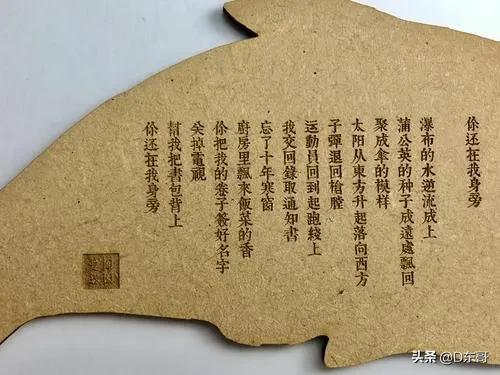 你还在我身旁
瀑布的水逆流成上
蒲公英的种子成遠處飄回
聚成傘的模样
太阳从東方升起落向西方
子彈退回槍膛
运動員回到起跑綫上
我交回錄取通知書
忘了十年寒窗
廚房里飄來飯菜的香
你把我的卷子簽好名字
关掉電視
幫我把書包背上
你还在我身旁
头条 @D东哥